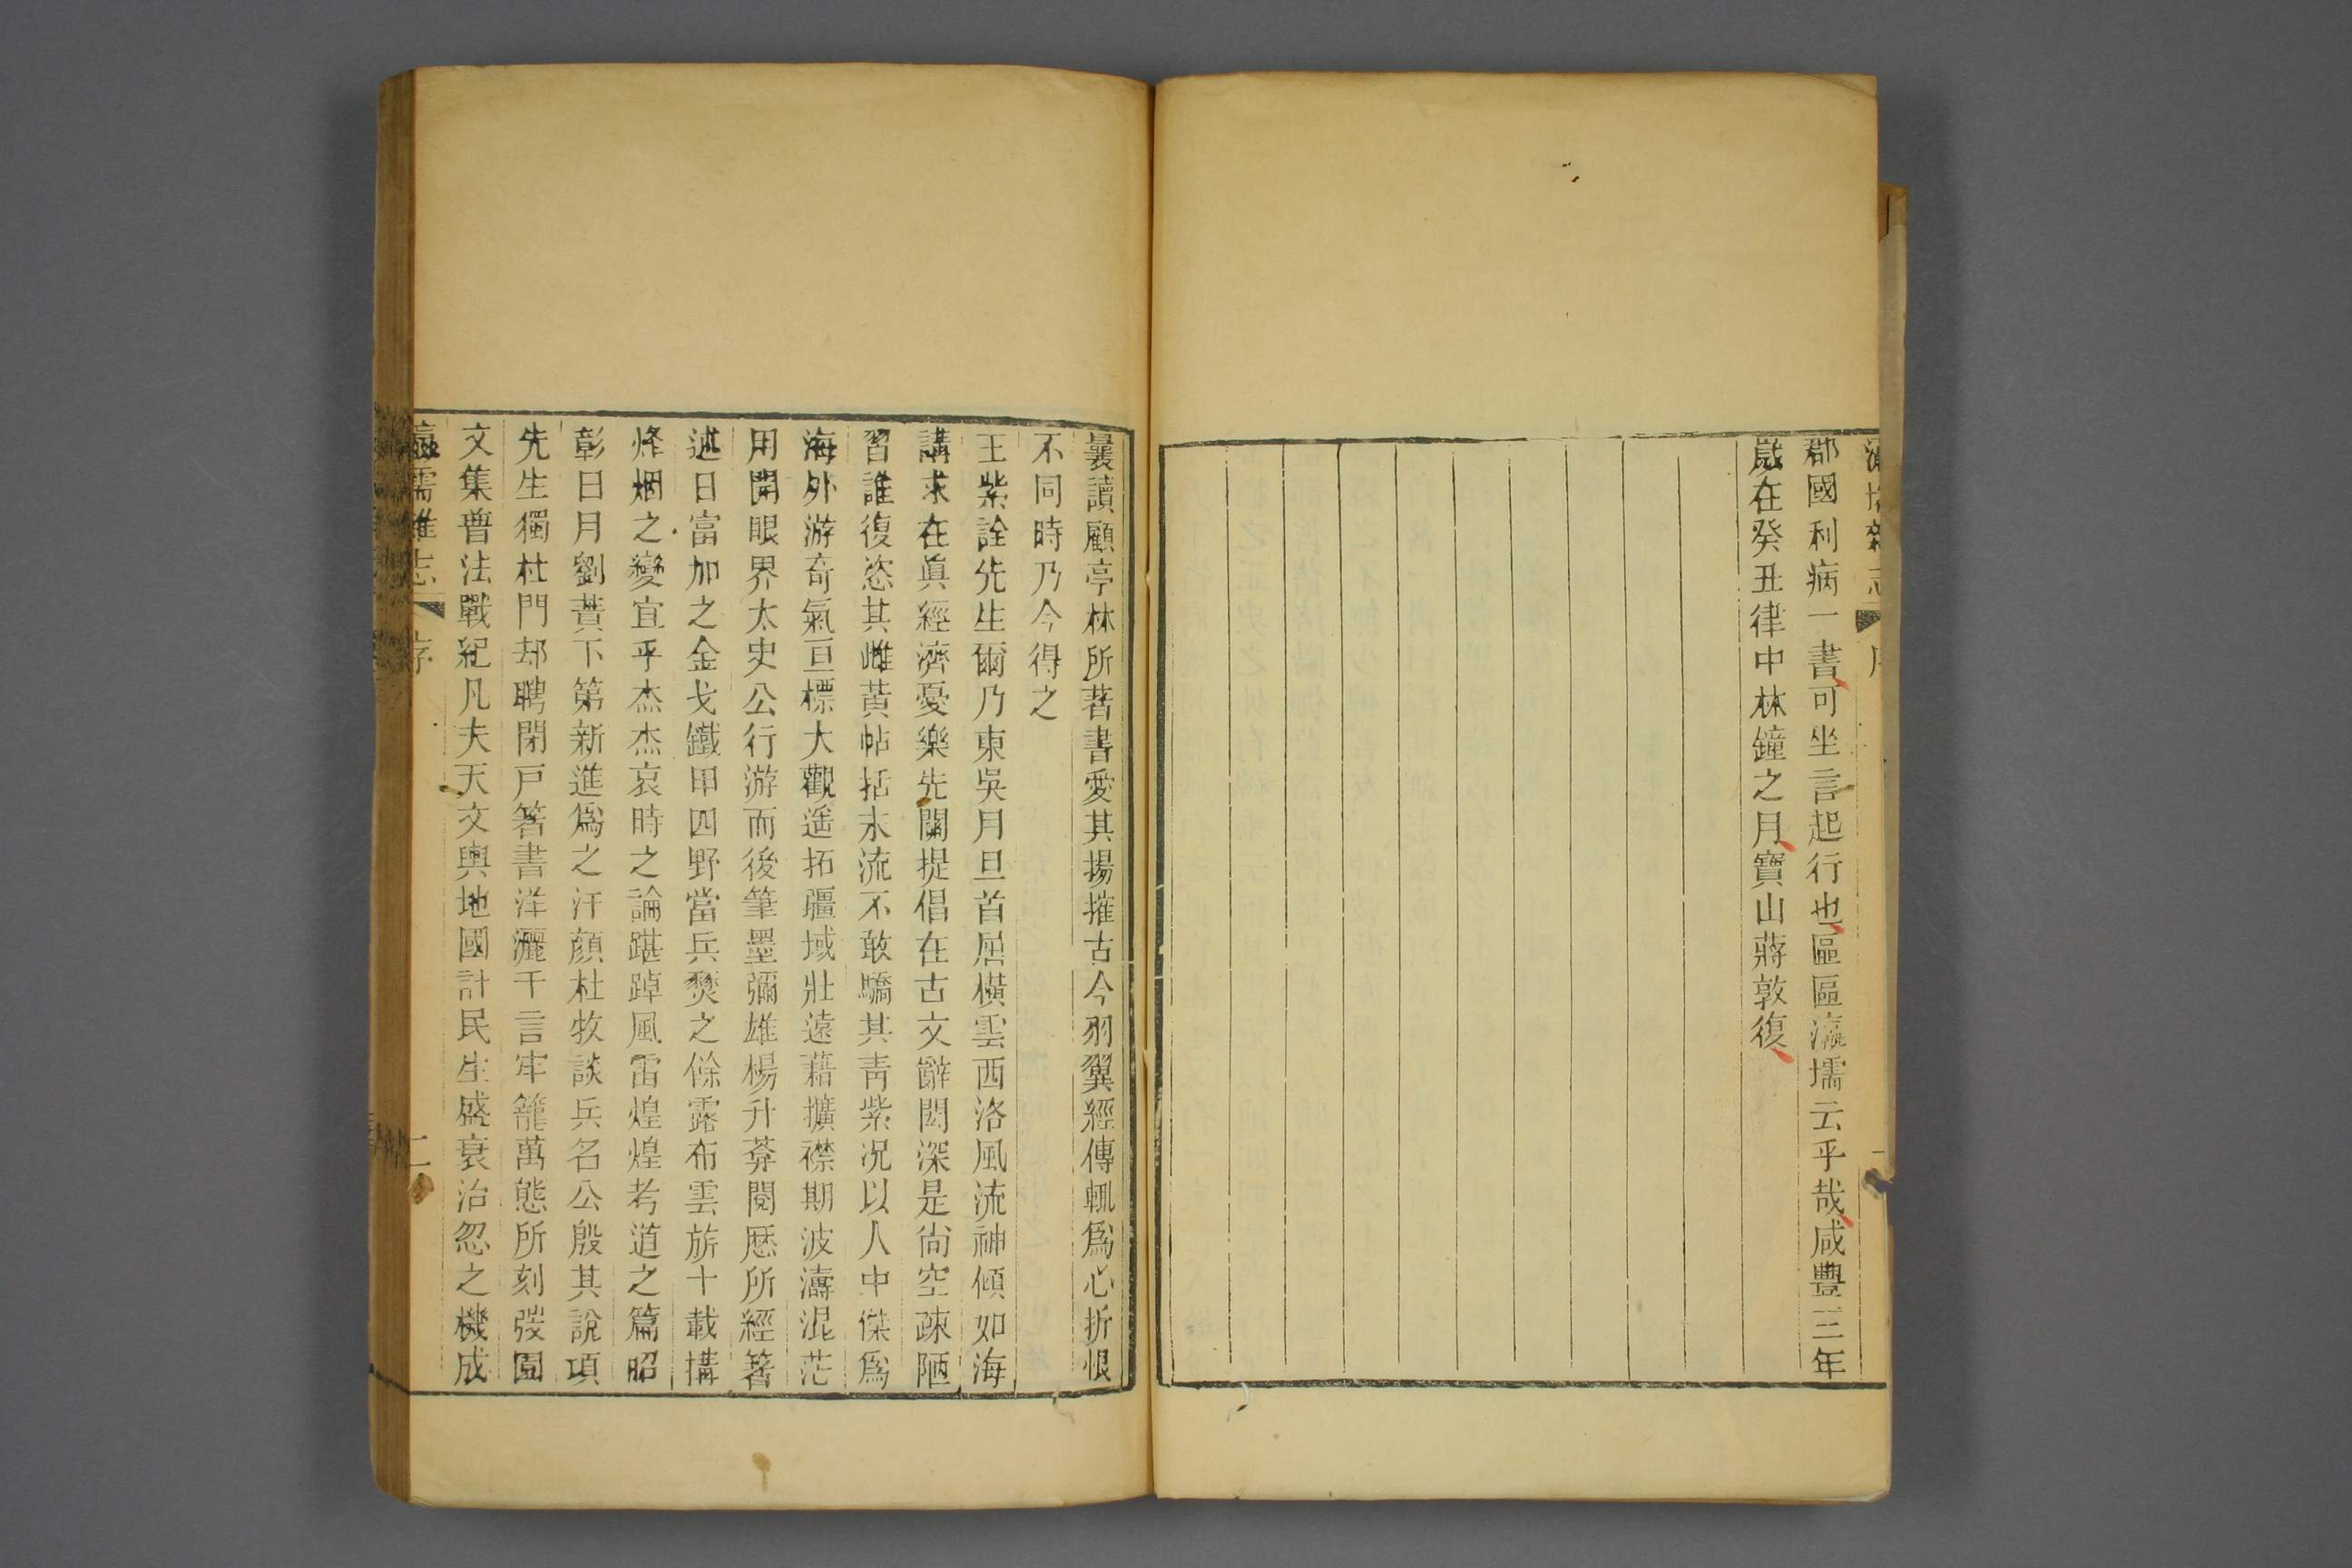 郡國利病一書可坐言起行也區區瀛壖云乎哉咸豐三年
歲在癸丑律中林鐘之月寶山蔣敦復
曩讀顧亭林所著書愛其揚搉古今羽翼經傳輒爲心折恨
不同時乃今得之
王紫詮先生爾乃東吳月旦首屈橫雲西洛風流神傾如海
講求在眞經濟憂樂先關捉倡在古文辭閎深是尙空疎陋
習誰復恣其雌黃帖括末流不敢驕其靑紫况以人中傑爲
海外游奇氣亘標大觀遥拓疆域壯遠藉擴襟期波濤混茫
用開眼界太史公行游而後筆墨彌雄楊升菴閱歷所經箸
述日富加之金戈鐵甲四野當兵燹之餘露布雲旂十載搆
烽烟之變宜乎杰杰哀時之論踸踔風雷煌煌考道之篇昭
彰日月劉蕡下第新進爲之汗顏杜牧談兵名公殷其說項
先生獨杜門却聘閉戸箸書洋灑千言牢籠萬態所刻弢園
文集普法戰紀凡夫天文輿地國計民生盛衰治忽之機成
瀛壖雜志 序 二